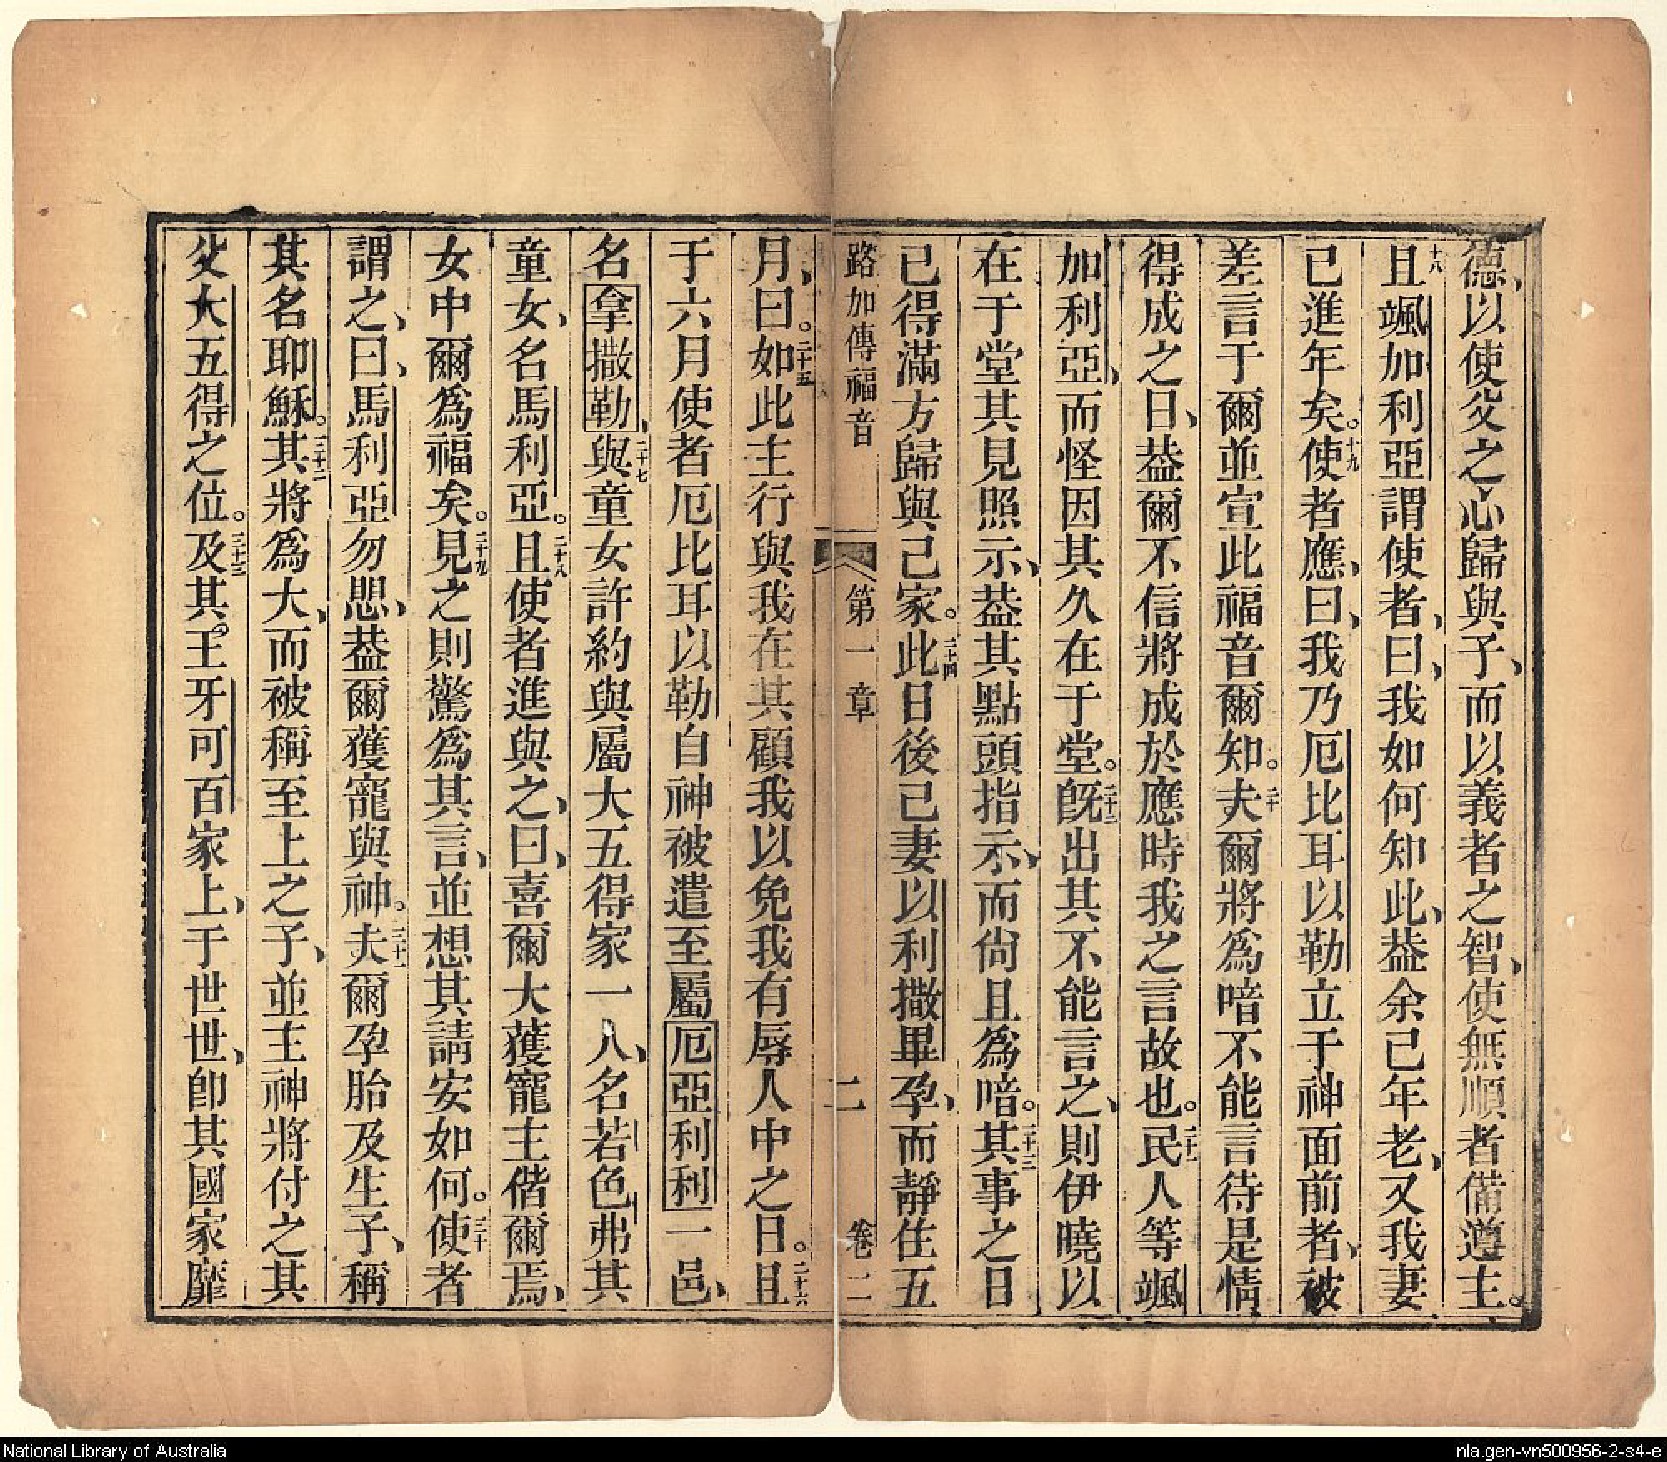 德、以使父之心歸與子、而以義者之智、使無順者備遵主。
十八且颯加利亞謂使者、曰、我如何知此、葢余已年老、又我妻
已進年矣。十九使者應、曰、我乃厄比耳以勒立于神面前者、被
差言于爾並宣此福音爾知。二十夫爾將為喑不能言待是情
得成之日、葢爾不信將成於應時我之言故也。二十一民人等颯
加利亞、而怪因其久在于堂。二十二旣出其不能言之、則伊曉以
在于堂其見照示、葢其點頭指示、而尙且為喑。二十三其事之日
已得滿方歸與己家。二十四此日後己妻以利撒畢孕、而靜住五
路加傳福音 第一章 二 卷二
月、曰。二十五如此主行與我在其顧我以免我有辱人中之日。二十六且
于六月使者厄比耳以勒自神被遣至屬厄亞利利一邑、
名拿撒勒、二十七與童女許約與屬大五得家一人、名若色弗其
童女、名馬利亞。二十八且使者進與之、曰、喜爾大獲寵主偕爾焉、
女中爾為福矣。二十九見之則驚為其言、並想其請安如何。三十使者
謂之、曰、馬利亞勿思、葢爾獲寵與神。三十一夫爾孕胎及生子、稱
其名耶穌。三十二其將為大、而被稱至上之子、並主神將付之其
父大五得之位。三十三及其。王牙可百家上、于世世、卽其國家靡
National Library of Australia
nla.gen-vn500956-2-s4-e